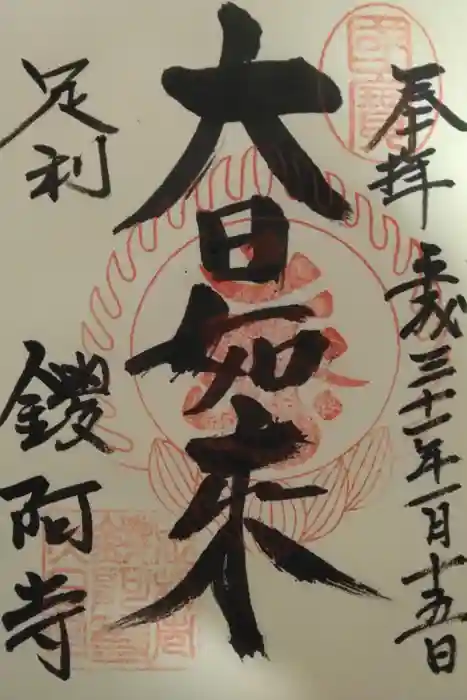 奉拝
平成三十一年一月十五日
國寶
大日如来
足利
鑁阿寺